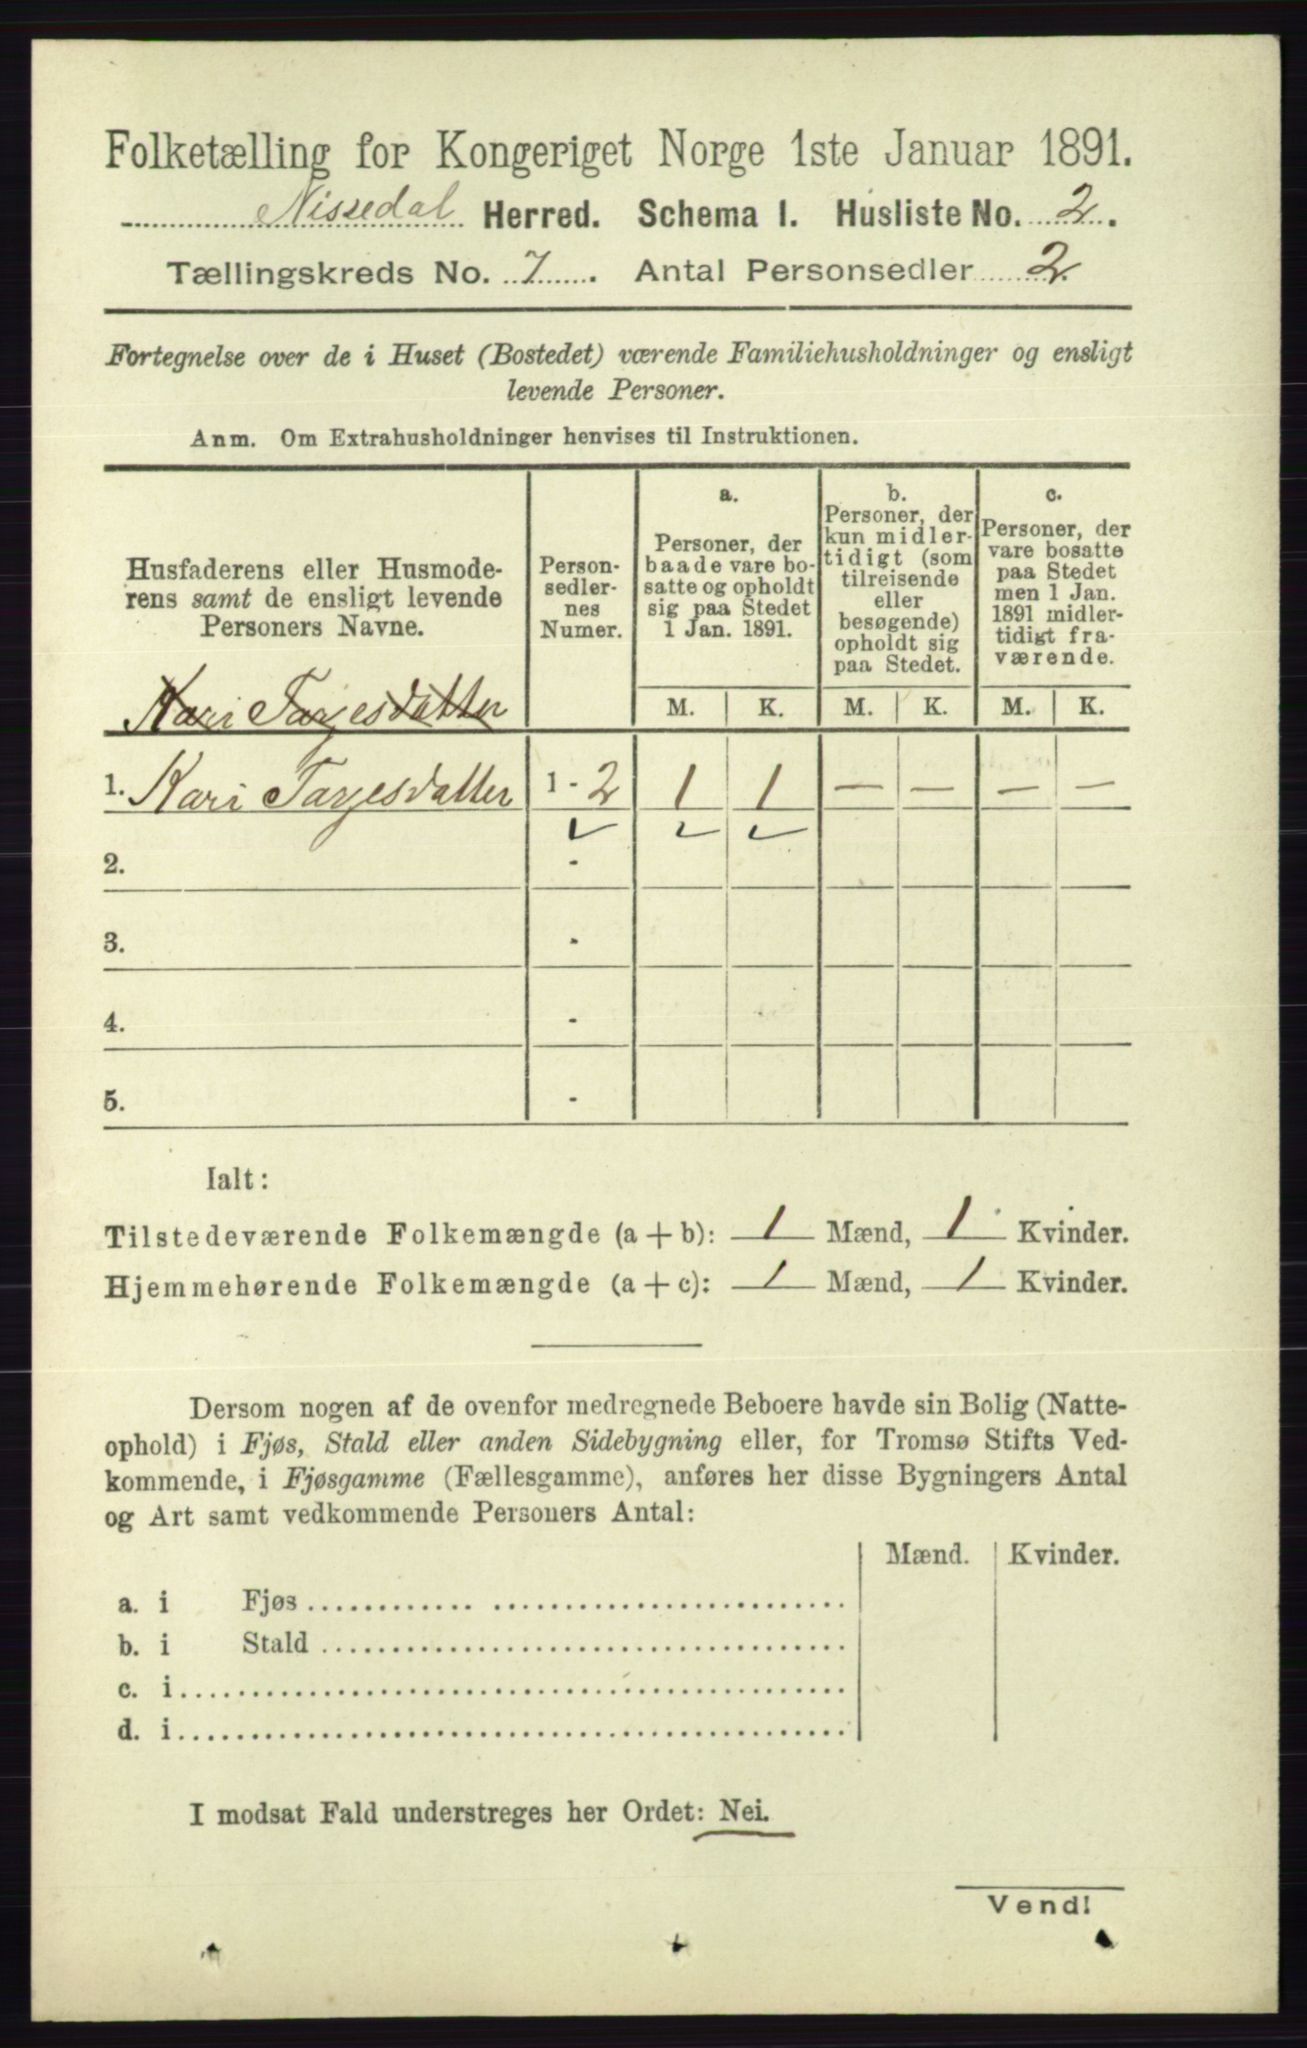 Folketælling for Kongeriget Norge 1ste Januar 1891.
Nissedal Herred. Schema I. Husliste No. 2.
Tællingskreds No. 7. Antal Personsedler 2
Fortegnelse over de i Huset (Bostedet) værende Familiehusholdninger og ensligt
levende Personer.
Anm. Om Extrahusholdninger henvises til Instruktionen.
Husfaderens eller Husmode-
rens samt de ensligt levende
Personers Navne.
Person-
sedler-
nes
Numer.
a.
Personer, der
baade vare bo-
satte og opholdt
sig paa Stedet
1 Jan. 1891.
b.
Personer, der
kun midler-
tidigt (som
tilreisende
eller
besøgende)
opholdt sig
paa Stedet.
c.
Personer, der
vare bosatte
paa Stedet
men 1 Jan.
1891 midler-
tidigt fra-
værende.
Kari Tarjesdatter
M. K. M. K. M. K.
1. Kari Tarjesdatter 1 - 2 1 1 — — — —
✓ ✓ ✓
2. -
3. -
4. -
5. -
Ialt:
Tilstedeværende Folkemængde (a + b): 1 Mænd, 1 Kvinder.
Hjemmehørende Folkemængde (a + c): 1 Mænd, 1 Kvinder.
Dersom nogen af de ovenfor medregnede Beboere havde sin Bolig (Natte-
ophold) i Fjøs, Stald eller anden Sidebygning eller, for Tromsø Stifts Ved-
kommende, i Fjøsgamme (Fællesgamme), anføres her disse Bygningers Antal
og Art samt vedkommende Personers Antal:
Mænd. Kvinder.
a. i Fjøs
b. i Stald
c. i
d. i
I modsat Fald understreges her Ordet: Nei.
Vend!